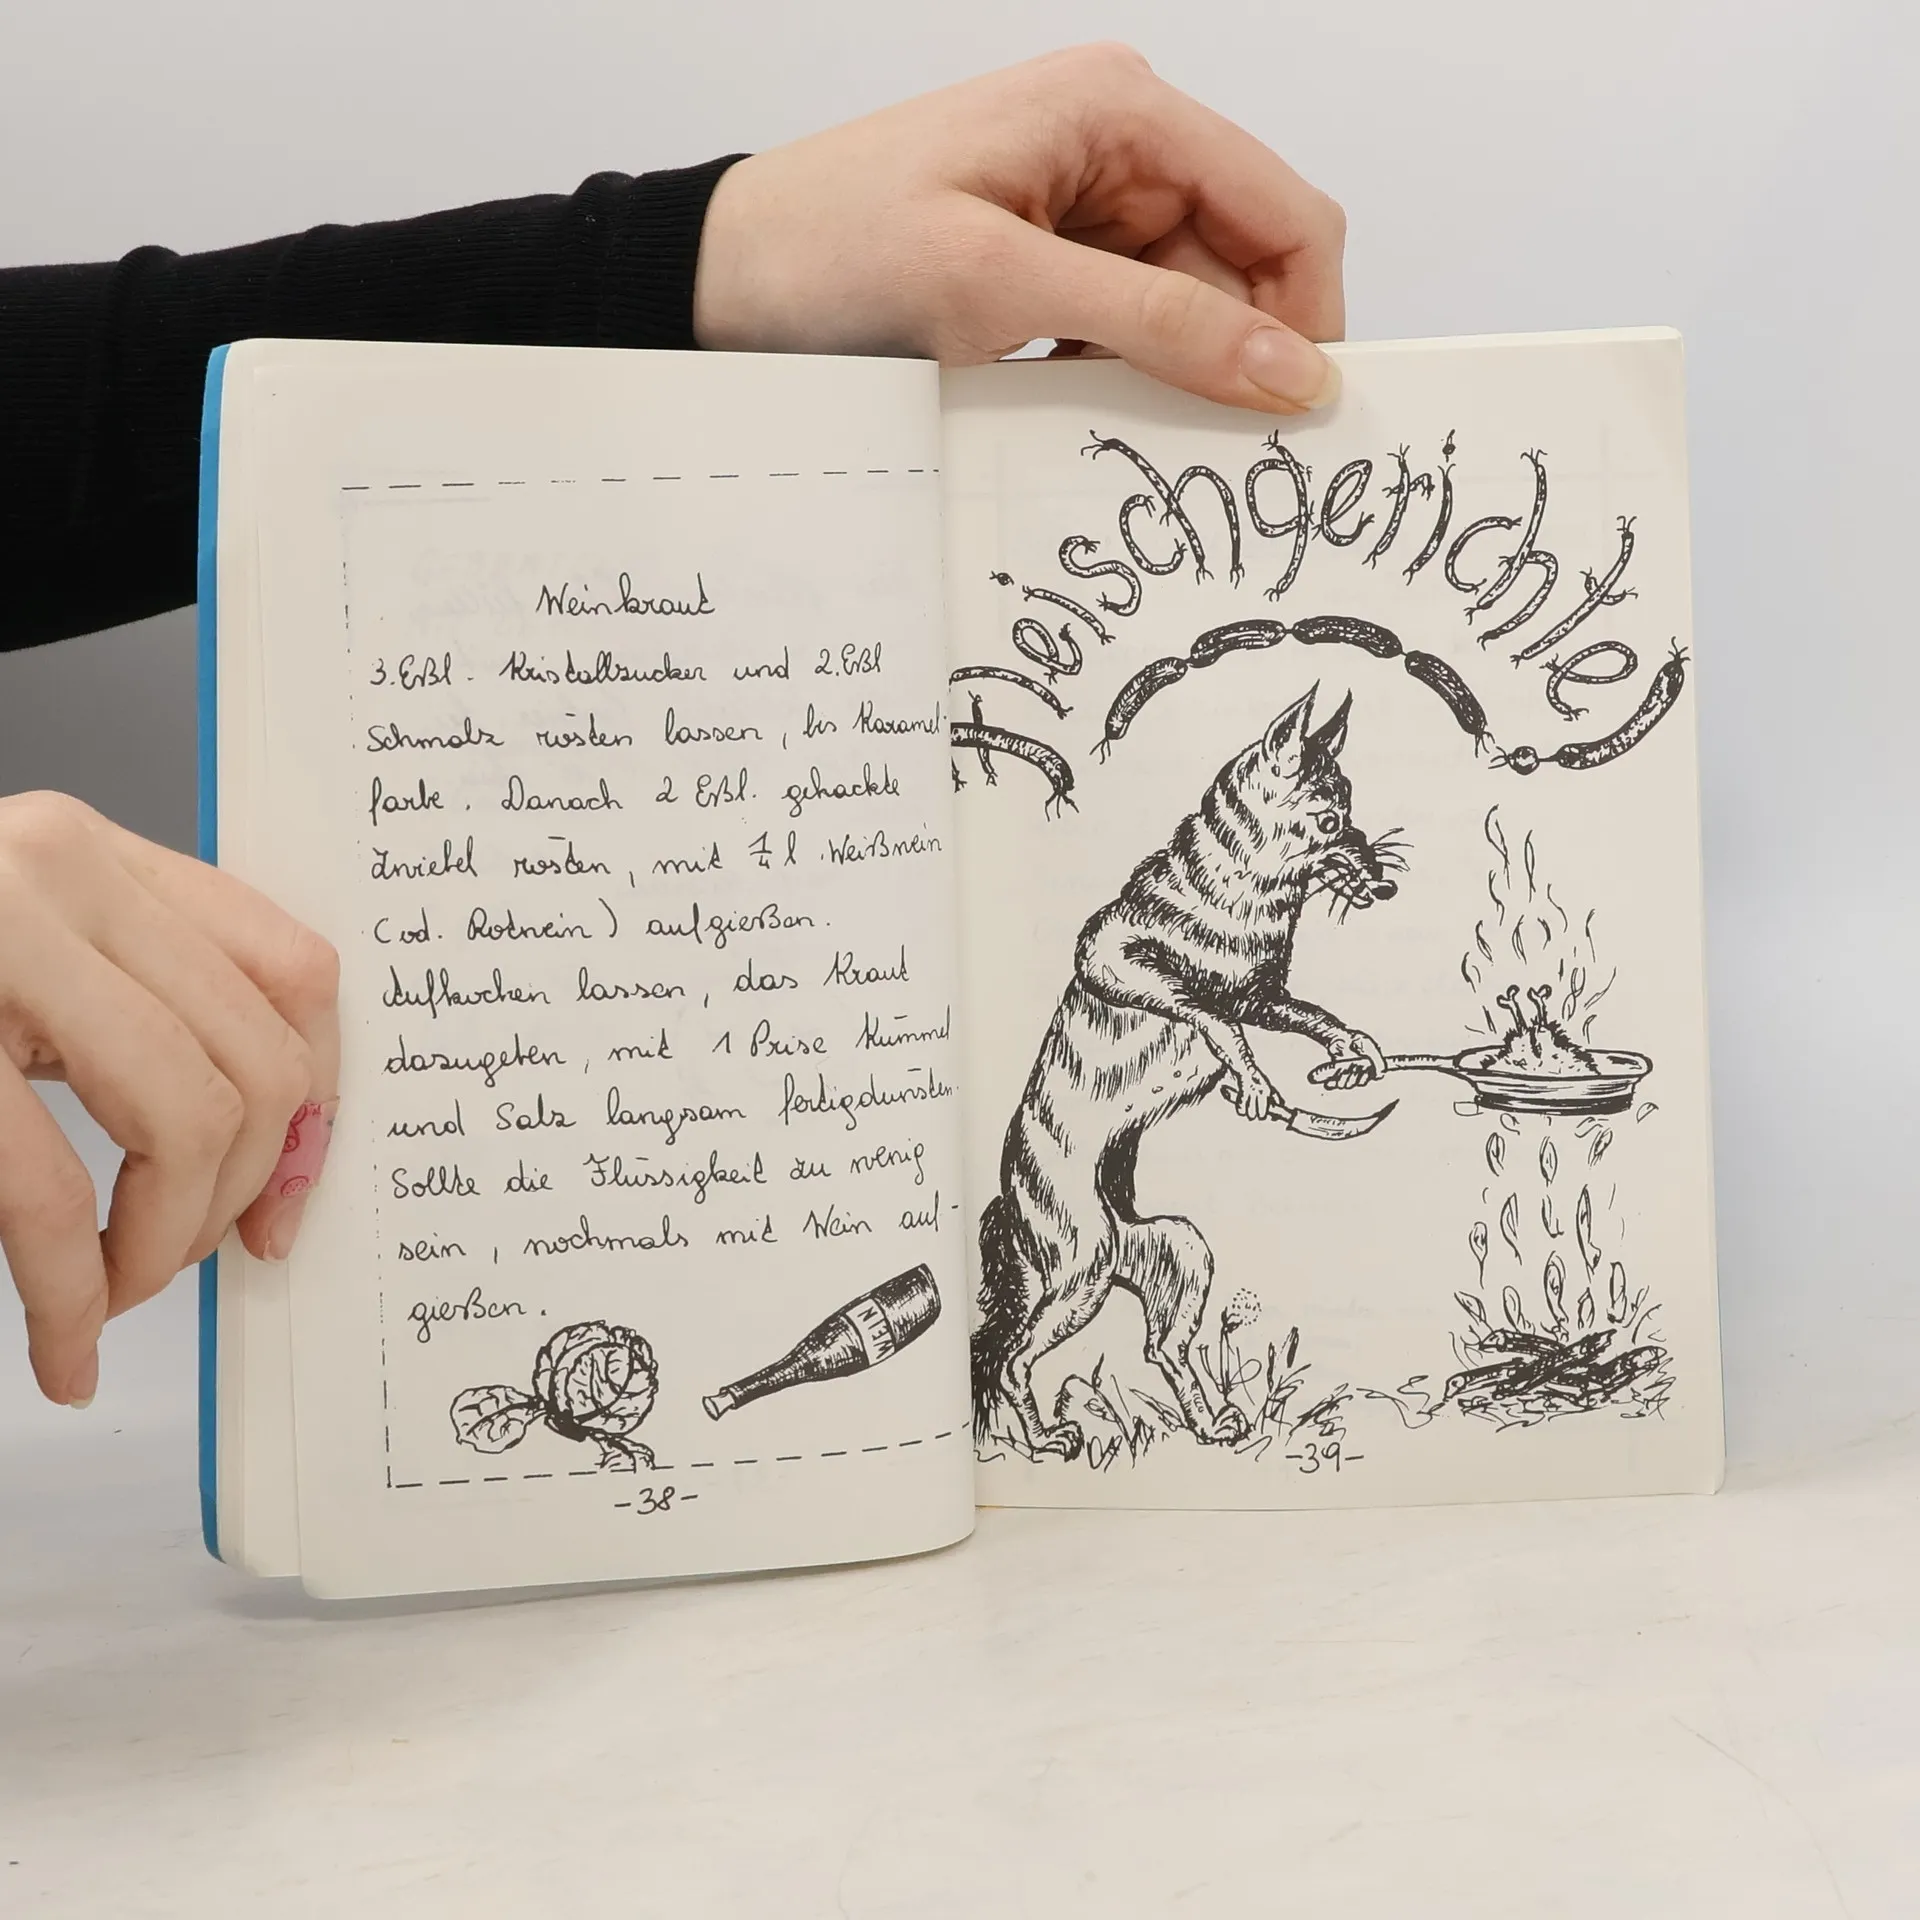 Weinkraut
3.Eßl. Kristallzucker und 2.Eßl
Schmalz rösten lassen, bis Karamel-
farbe. Danach 2 Eßl. gehackte
Zwiebel rösten, mit 1/4 l Weißwein
(od. Rotwein) aufgießen.
Aufkochen lassen, das Kraut
dazugeben, mit 1 Prise Kümmel
und Salz langsam fertigdünsten.
Sollte die Flüssigkeit zu wenig
sein, nochmals mit Wein auf-
gießen.
WEIN
-38-
Fleischgerichte
-39-